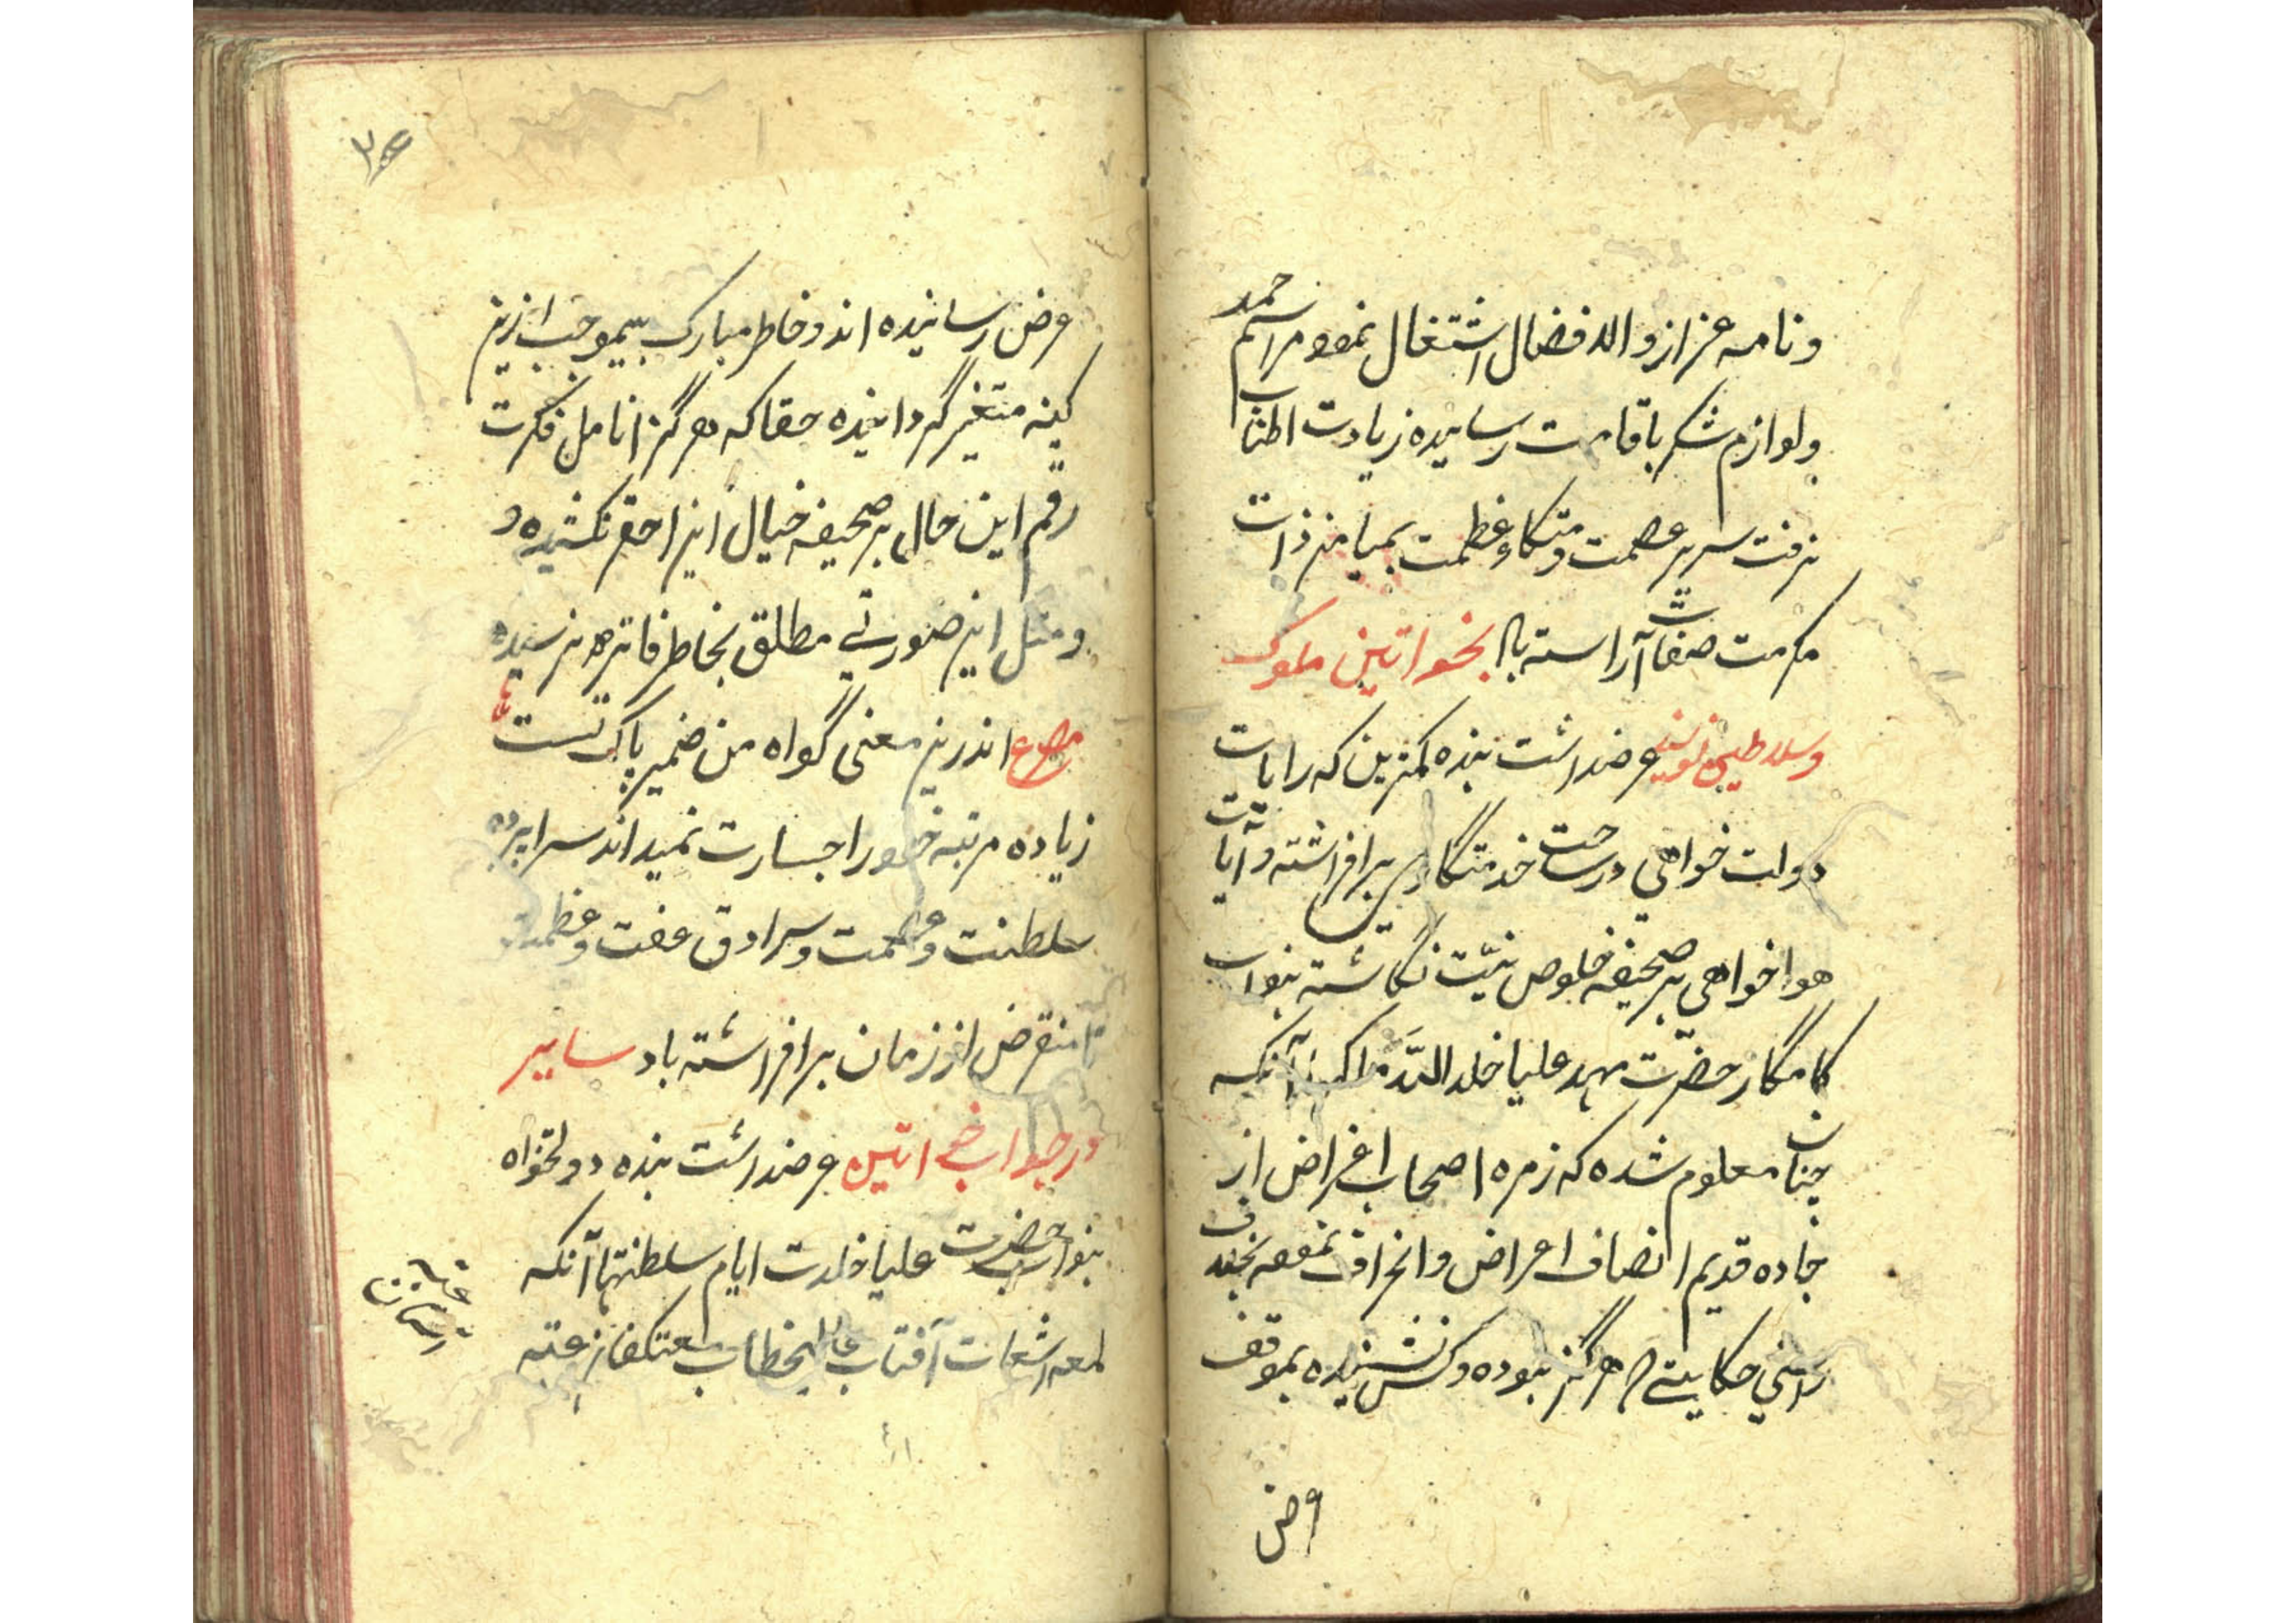 و نامه عز از والافضال اشتغال نموده مراسم حمد
و لوازم شکر باقامت رسانیده زیادت اطناب
نرفت سریر عصمت و متکاء عظمت بمیامن ذات
مکرمت صفات آراسته باد بخواتین ملوک
و سلاطین نویسند عرضداشت بنده کمترین که رایات
دولت خواهی در ساحت خدمتکاری برافراشته و آیات
هواخواهی بر صحیفه خلوص نیّت نگاشته بنواب
کامگار حضرت مهد علیا خلد اللّه ملکها آنکه
چنان معلوم شده که زمره اصحاب اغراض از
جاده قدیم انصاف اعراض و انحراف نموده بخلاف
راستی حکایتی که هرگز نبوده و کس نشنیده بموقف
عرض
۳۶
عرض رسانیده اند و خاطر مبارک بیموجب ازین
کینه متغیر گردانیده حقا که هرگز انامل فکرت
رقم این حال بر صحیفه خیال این احقر نکشیده و
و مثل این صورتی مطلق بخاطر فاتر هم نرسیده
مصرع اندرین معنی گواه من ضمیر پاک تست
زیاده مرتبه خود را جسارت نمیداند سراپرده
سلطنت و عصمت و سرادق عفت و عظمت
تا منقرض از زمان برافراشته باد سایر
در جواب خواتین عرضداشت بنده دولتخواه
بنواب حضرت علیا خلدت ایام سلطنتها آنکه
لمعه اشعات آفتاب عالیخطاب معتکفان عتبه